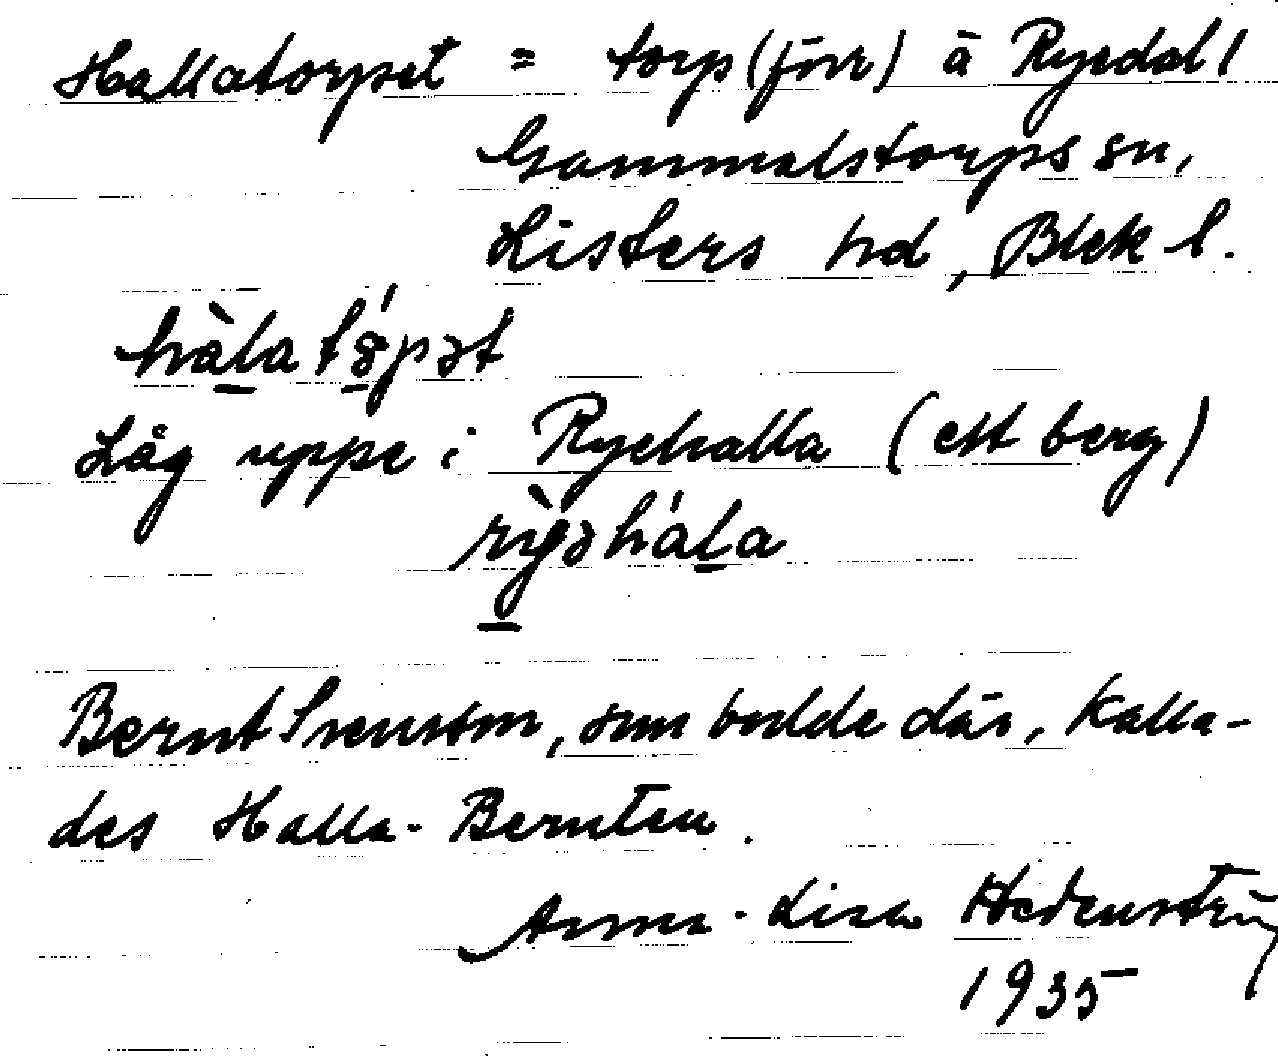 Hallatorpet = torp (förr) å Ryedal 1
Gammalstorps sn,
Listers hd, Blek l.
hàlatópət
Låg uppe i Ryehalla (ett berg)
rỳəhála
Bernt Svensson, som bodde där, kalla-
des Halla-Bernten.
Anna-Lisa Hedenström
1935